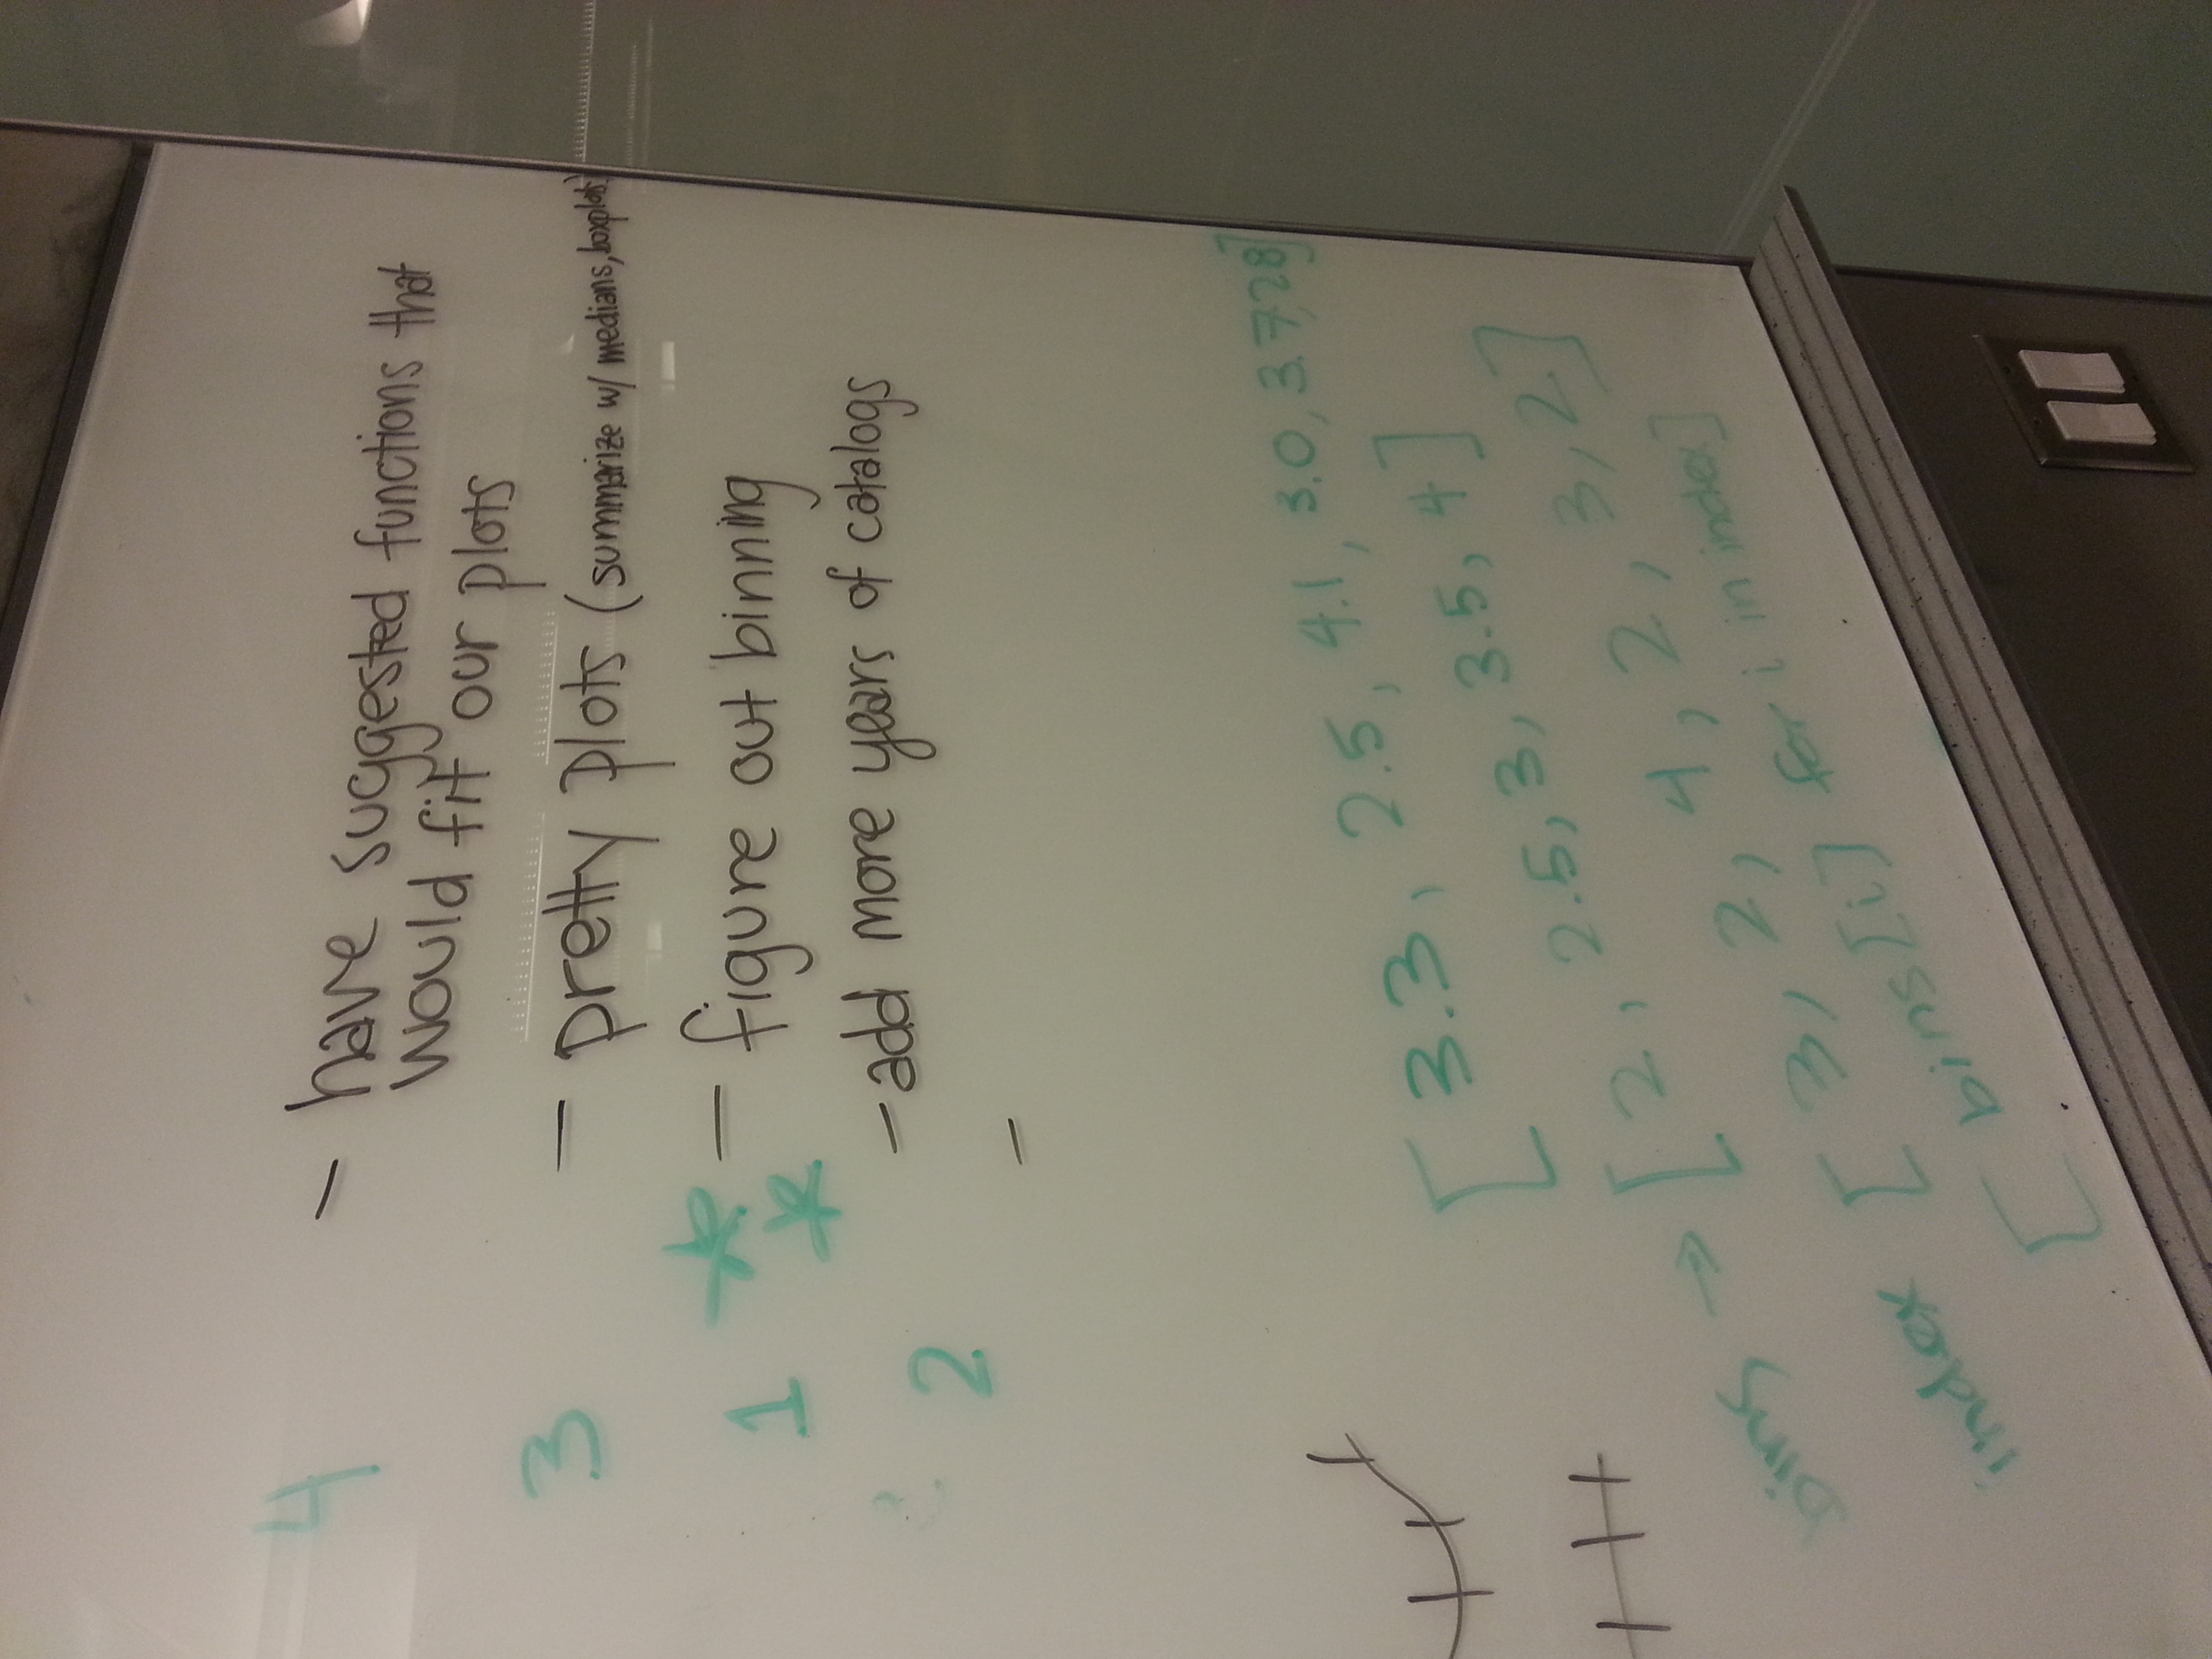 4 - have suggested functions that
would fit our plots
3 - pretty plots (summarize w/ medians, boxplots)
1 * - figure out binning
*
2 - add more years of catalogs
-
[3.3, 2.5, 4.1, 3.0, 3.7, 2.8]
bins → [2, 2.5, 3, 3.5, 4]
index [3, 2, 4, 2, 3, 2]
[bins[i] for i in index]